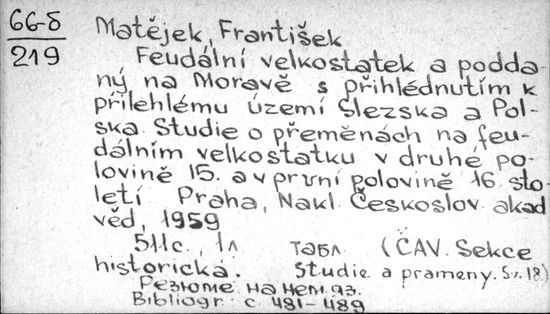 66-5
219
Matějek, František
Feudální velkostatek a podda-
ný na Moravě s přihlédnutím k
přilehlému území Slezska a Pol-
ska. Studie o přeměnách na feu-
dálním velkostatku v druhé po-
lovině 15. a v první polovině 16. sto-
letí. Praha, Nakl. Českoslov. akad
věd, 1959
511с., 1л табл. (ČAV. Sekce
historická. Studie a prameny. Sv. 18.)
Резюме на нем. яз.
Bibliogr: с. 481-489